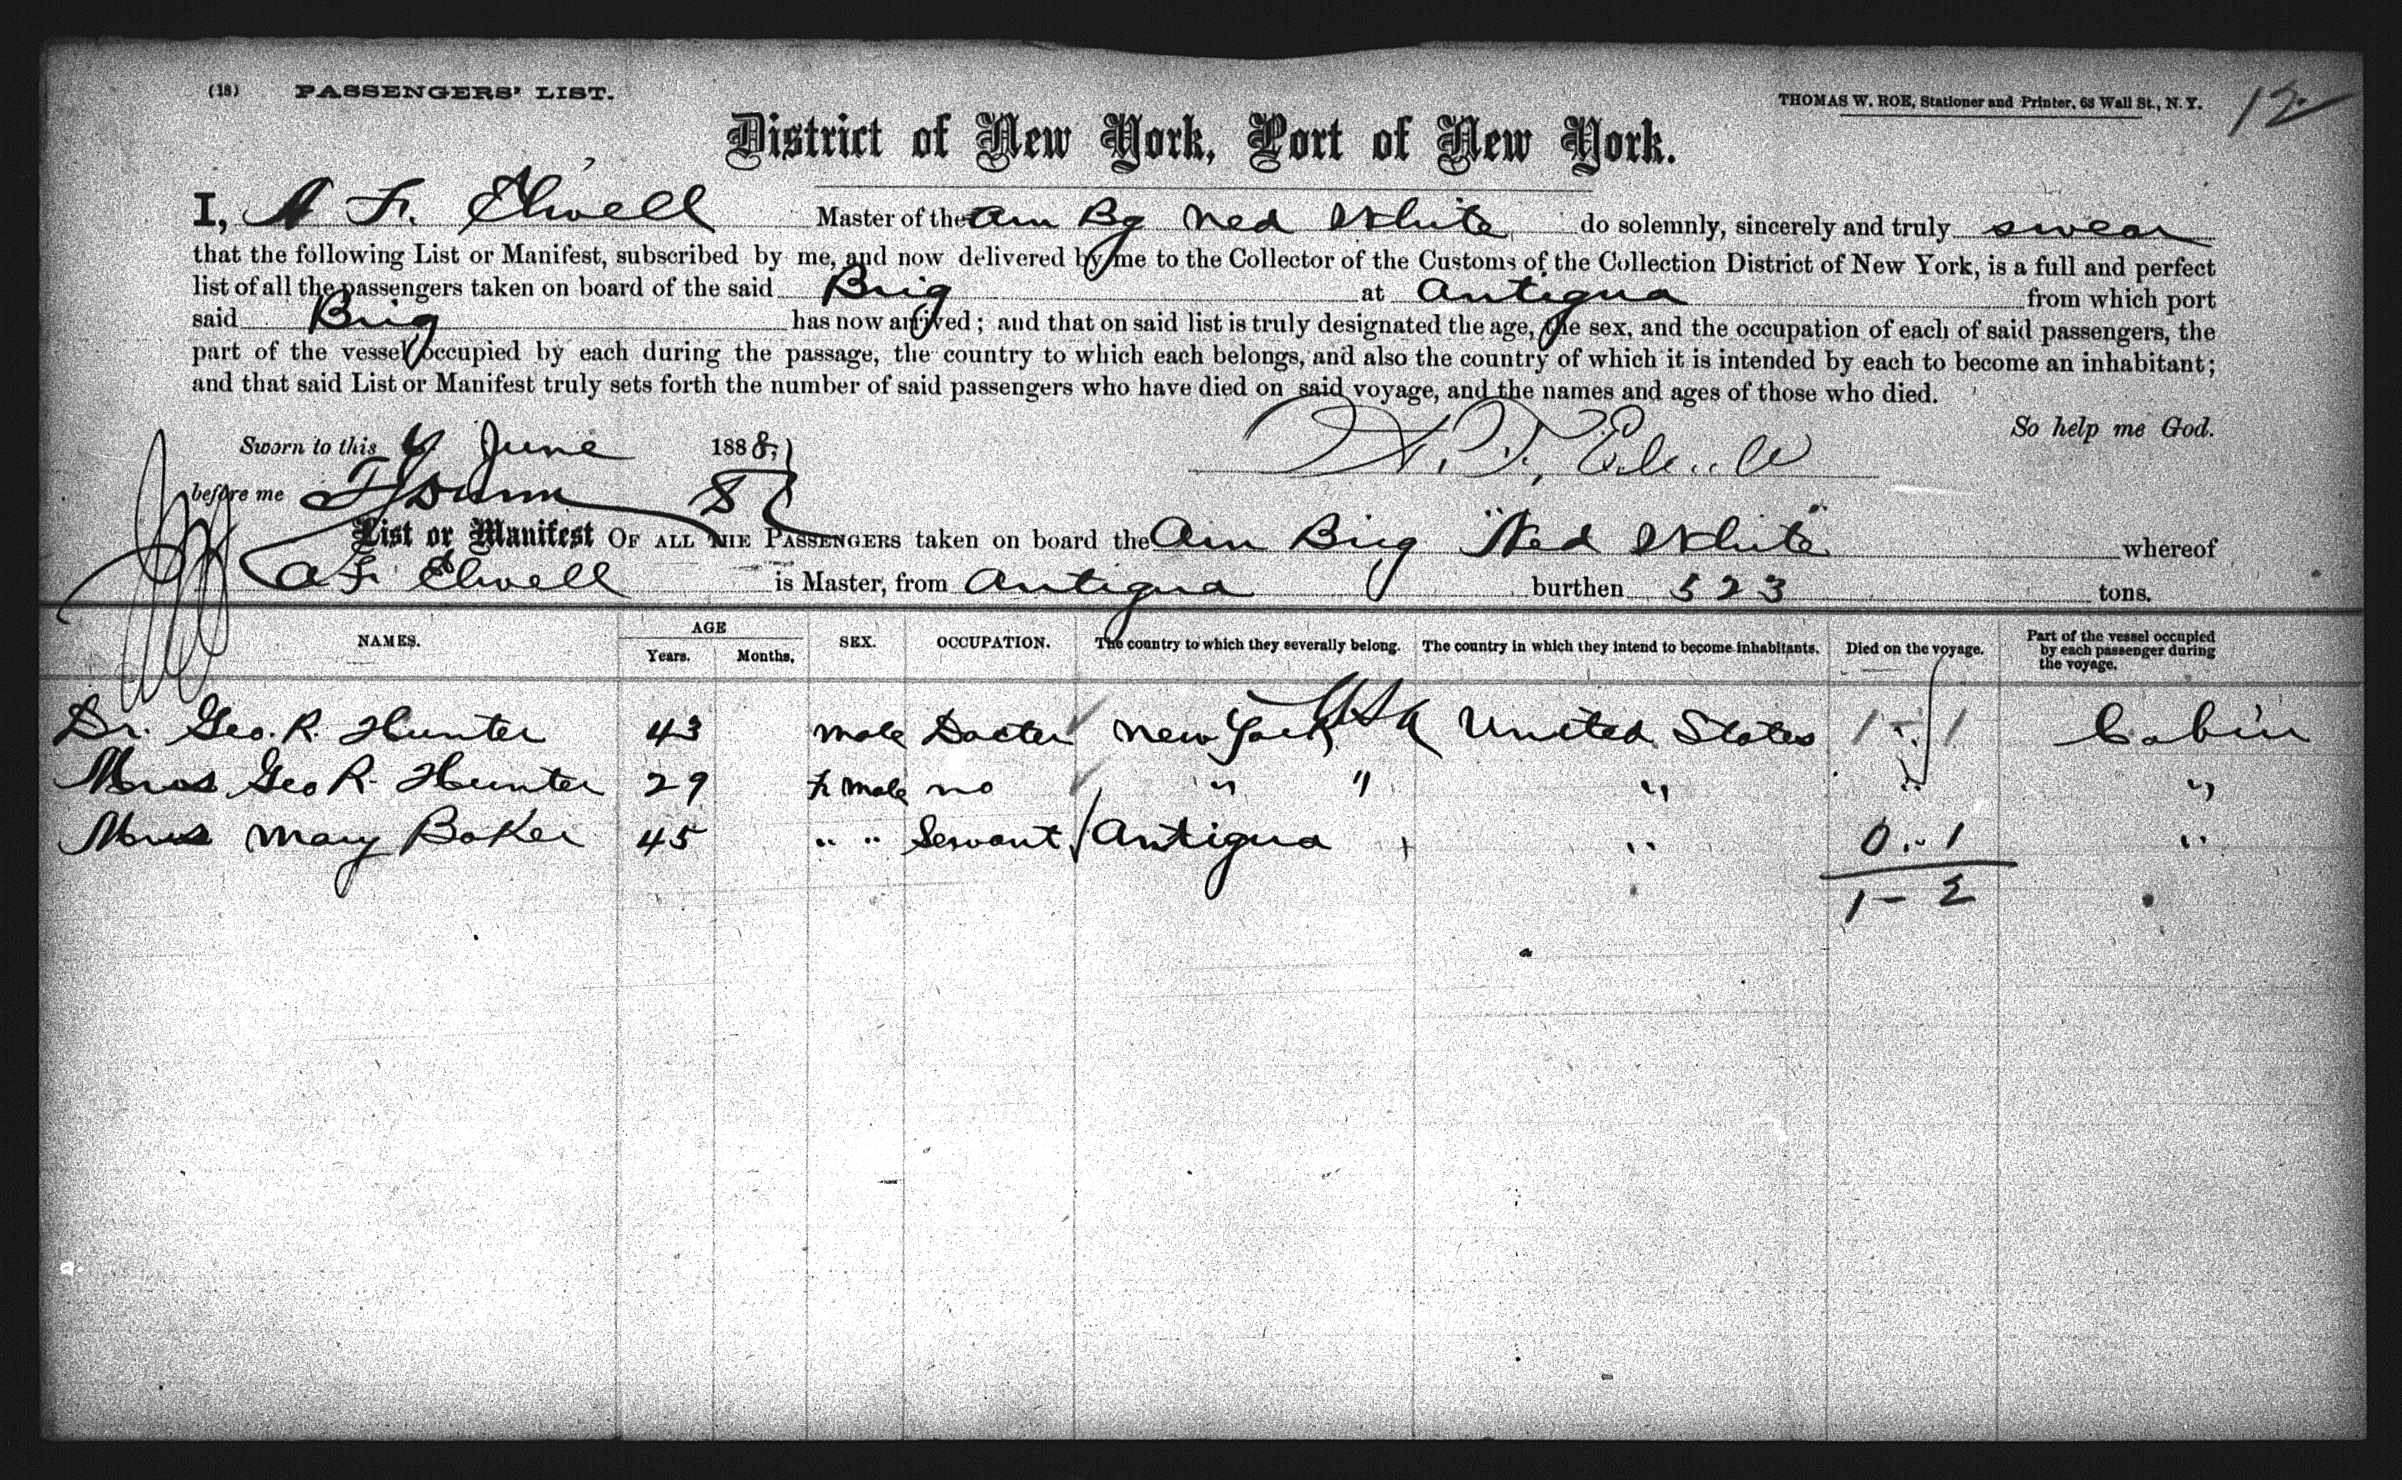 (18) PASSENGERS' LIST.
THOMAS W. ROE, Stationer and Printer, 63 Wall St., N. Y.
12
District of New York, Port of New York.
I, A F. Elwell Master of the Am Bg Ned White do solemnly, sincerely and truly swear
that the following List or Manifest, subscribed by me, and now delivered by me to the Collector of the Customs of the Collection District of New York, is a full and perfect
list of all the passengers taken on board of the said Brig at Antigua from which port
said Brig has now arrived; and that on said list is truly designated the age, the sex, and the occupation of each of said passengers, the
part of the vessel occupied by each during the passage, the country to which each belongs, and also the country of which it is intended by each to become an inhabitant;
and that said List or Manifest truly sets forth the number of said passengers who have died on said voyage, and the names and ages of those who died.
So help me God.
Sworn to this June 1888.
before me
List or Manifest OF ALL THE PASSENGERS taken on board the Am Brig "Ned White" whereof
A F. Elwell is Master, from Antigua burthen 523 tons.
NAMES. AGE Years. Months. SEX. OCCUPATION. The country to which they severally belong. The country in which they intend to become inhabitants. Died on the voyage. Part of the vessel occupied by each passenger during the voyage.
Dr. Geo. R. Hunter 43 male Docter New York USA United States 1 - 1 Cabin
Mrs Geo R. Hunter 29 F male no " " " " "
Mrs Mary Baker 45 " " Servant Antigua " 0 - 1 "
1 - 2